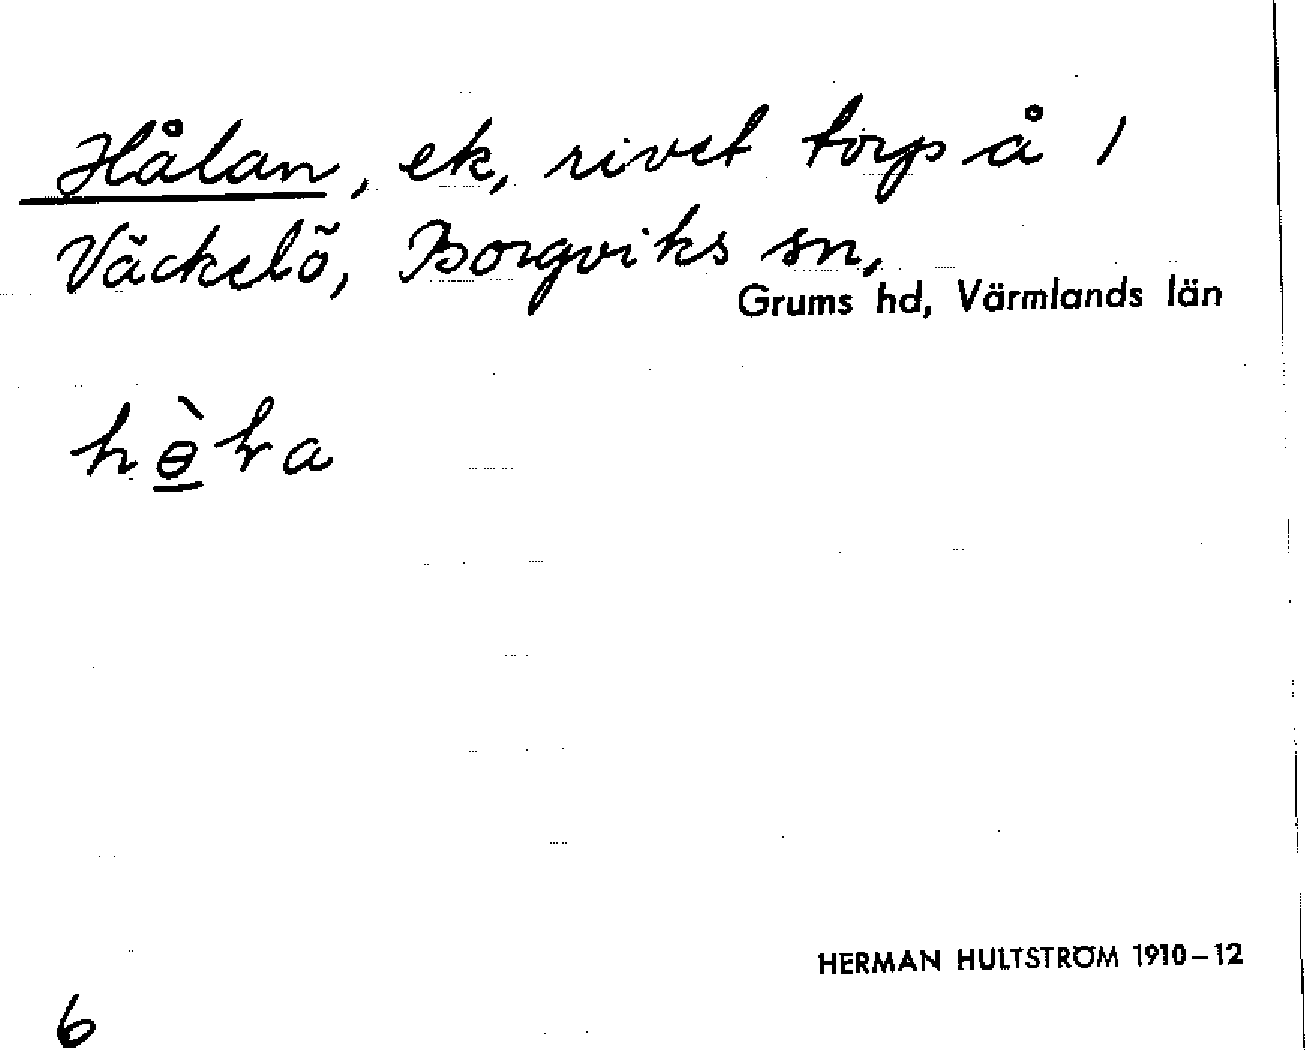 Hålan, ek, rivet torp å 1
Väckelö, Borgviks sn,
Grums hd, Värmlands län
hɵ̠̀ɽa
HERMAN HULTSTRÖM 1910–12
6